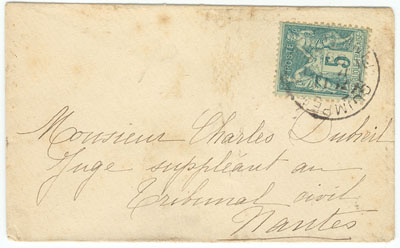 POSTE
5
QUIMPER
Monsieur Charles Dubreil
Juge suppléant au
Tribunal civil
Nantes